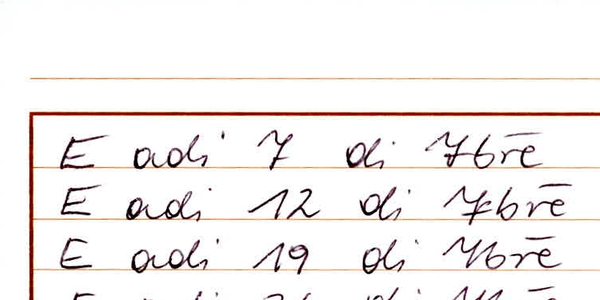 E adi 7 di 7brē
E adi 12 di 7brē
E adi 19 di 7brē